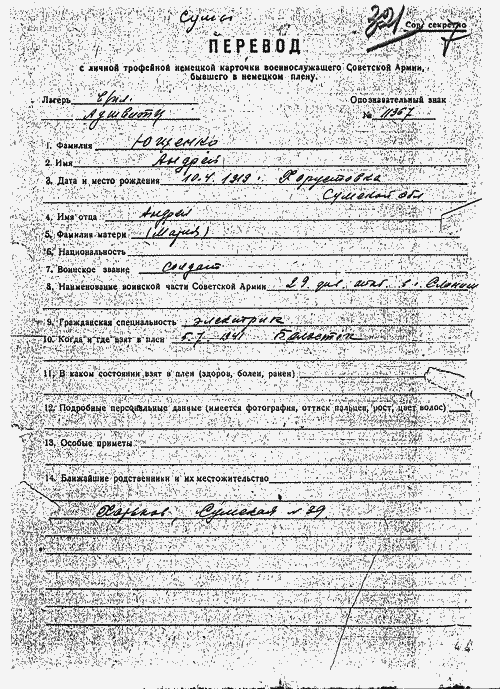 Сумы
321 Сов. секретно
ПЕРЕВОД
с личной трофейной немецкой карточки военнослужащего Советской Армии,
бывшего в немецком плену.
Лагерь
Опознавательный знак
Аушвитц
№ 11367
1. Фамилия Ющенко
2. Имя Андрей
3. Дата и место рождения 10.4. 1919 г. Хоружовка
Сумской обл
4. Имя отца Андрей
5. Фамилия матери (Мария)
6. Национальность
7. Воинское звание солдат
8. Наименование воинской части Советской Армии 29 див.
9. Гражданская специальность электрик
10. Когда и где взят в плен 5.7. 1941 Белосток
11. В каком состоянии взят в плен (здоров, болен, ранен)
12. Подробные персональные данные (имеется фотография, оттиск пальцев, рост, цвет волос)
13. Особые приметы
14. Ближайшие родственники и их местожительство
Харьков, Сумская № 39